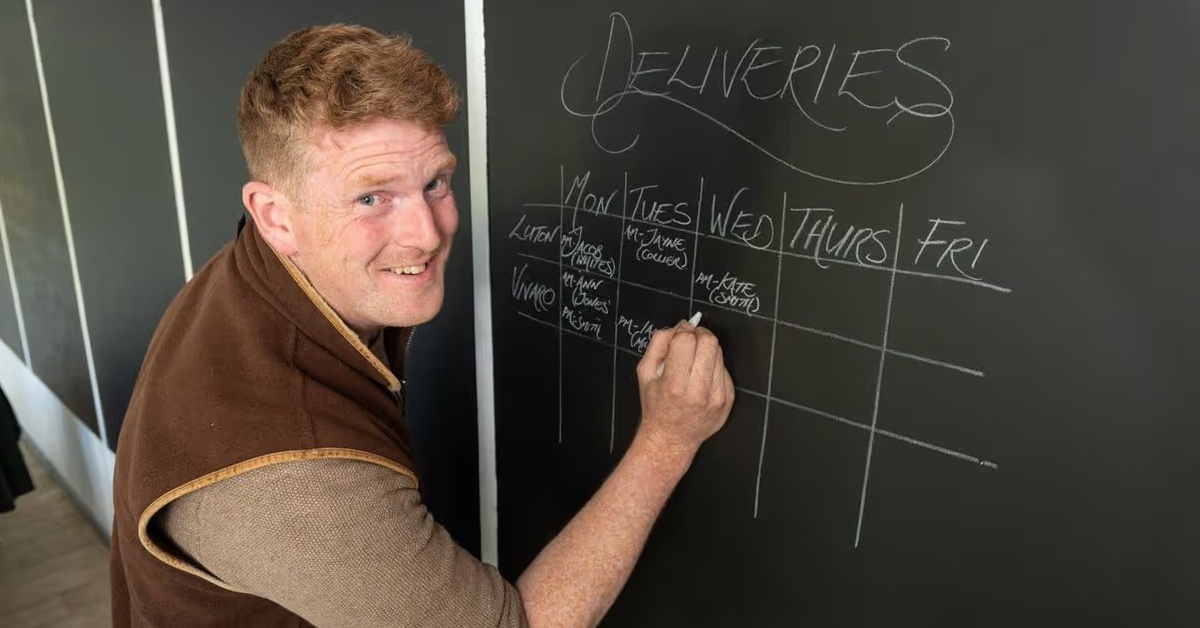 DELIVERIES
MON TUES WED THURS FRI
LUTON PM-JACOB (WHITES) AM-JAYNE (COLLIER)
VIVARO AM-ANN (JONES) PM-KATE (SMITH)
PM-SMITH PM-